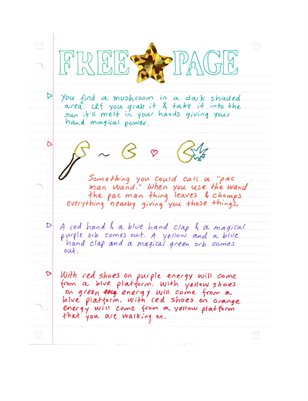 FREE PAGE
You find a mushroom in a dark shaded
area. Let you grab it & take it into the
sun it'll melt in your hands giving your
hand magical power.
Something you could call a "pac
man wand." When you use the wand
the pac man thing leaves & chomps
everything nearby giving you those things.
A red hand & a blue hand clap & a magical
purple orb comes out. A yellow and a blue
hand clap and a magical green orb comes
out.
With red shoes on purple energy will come
from a blue platform. With yellow shoes
on green energy will come from a
blue platform. With red shoes on orange
energy will come from a yellow platform
that you are walking on.